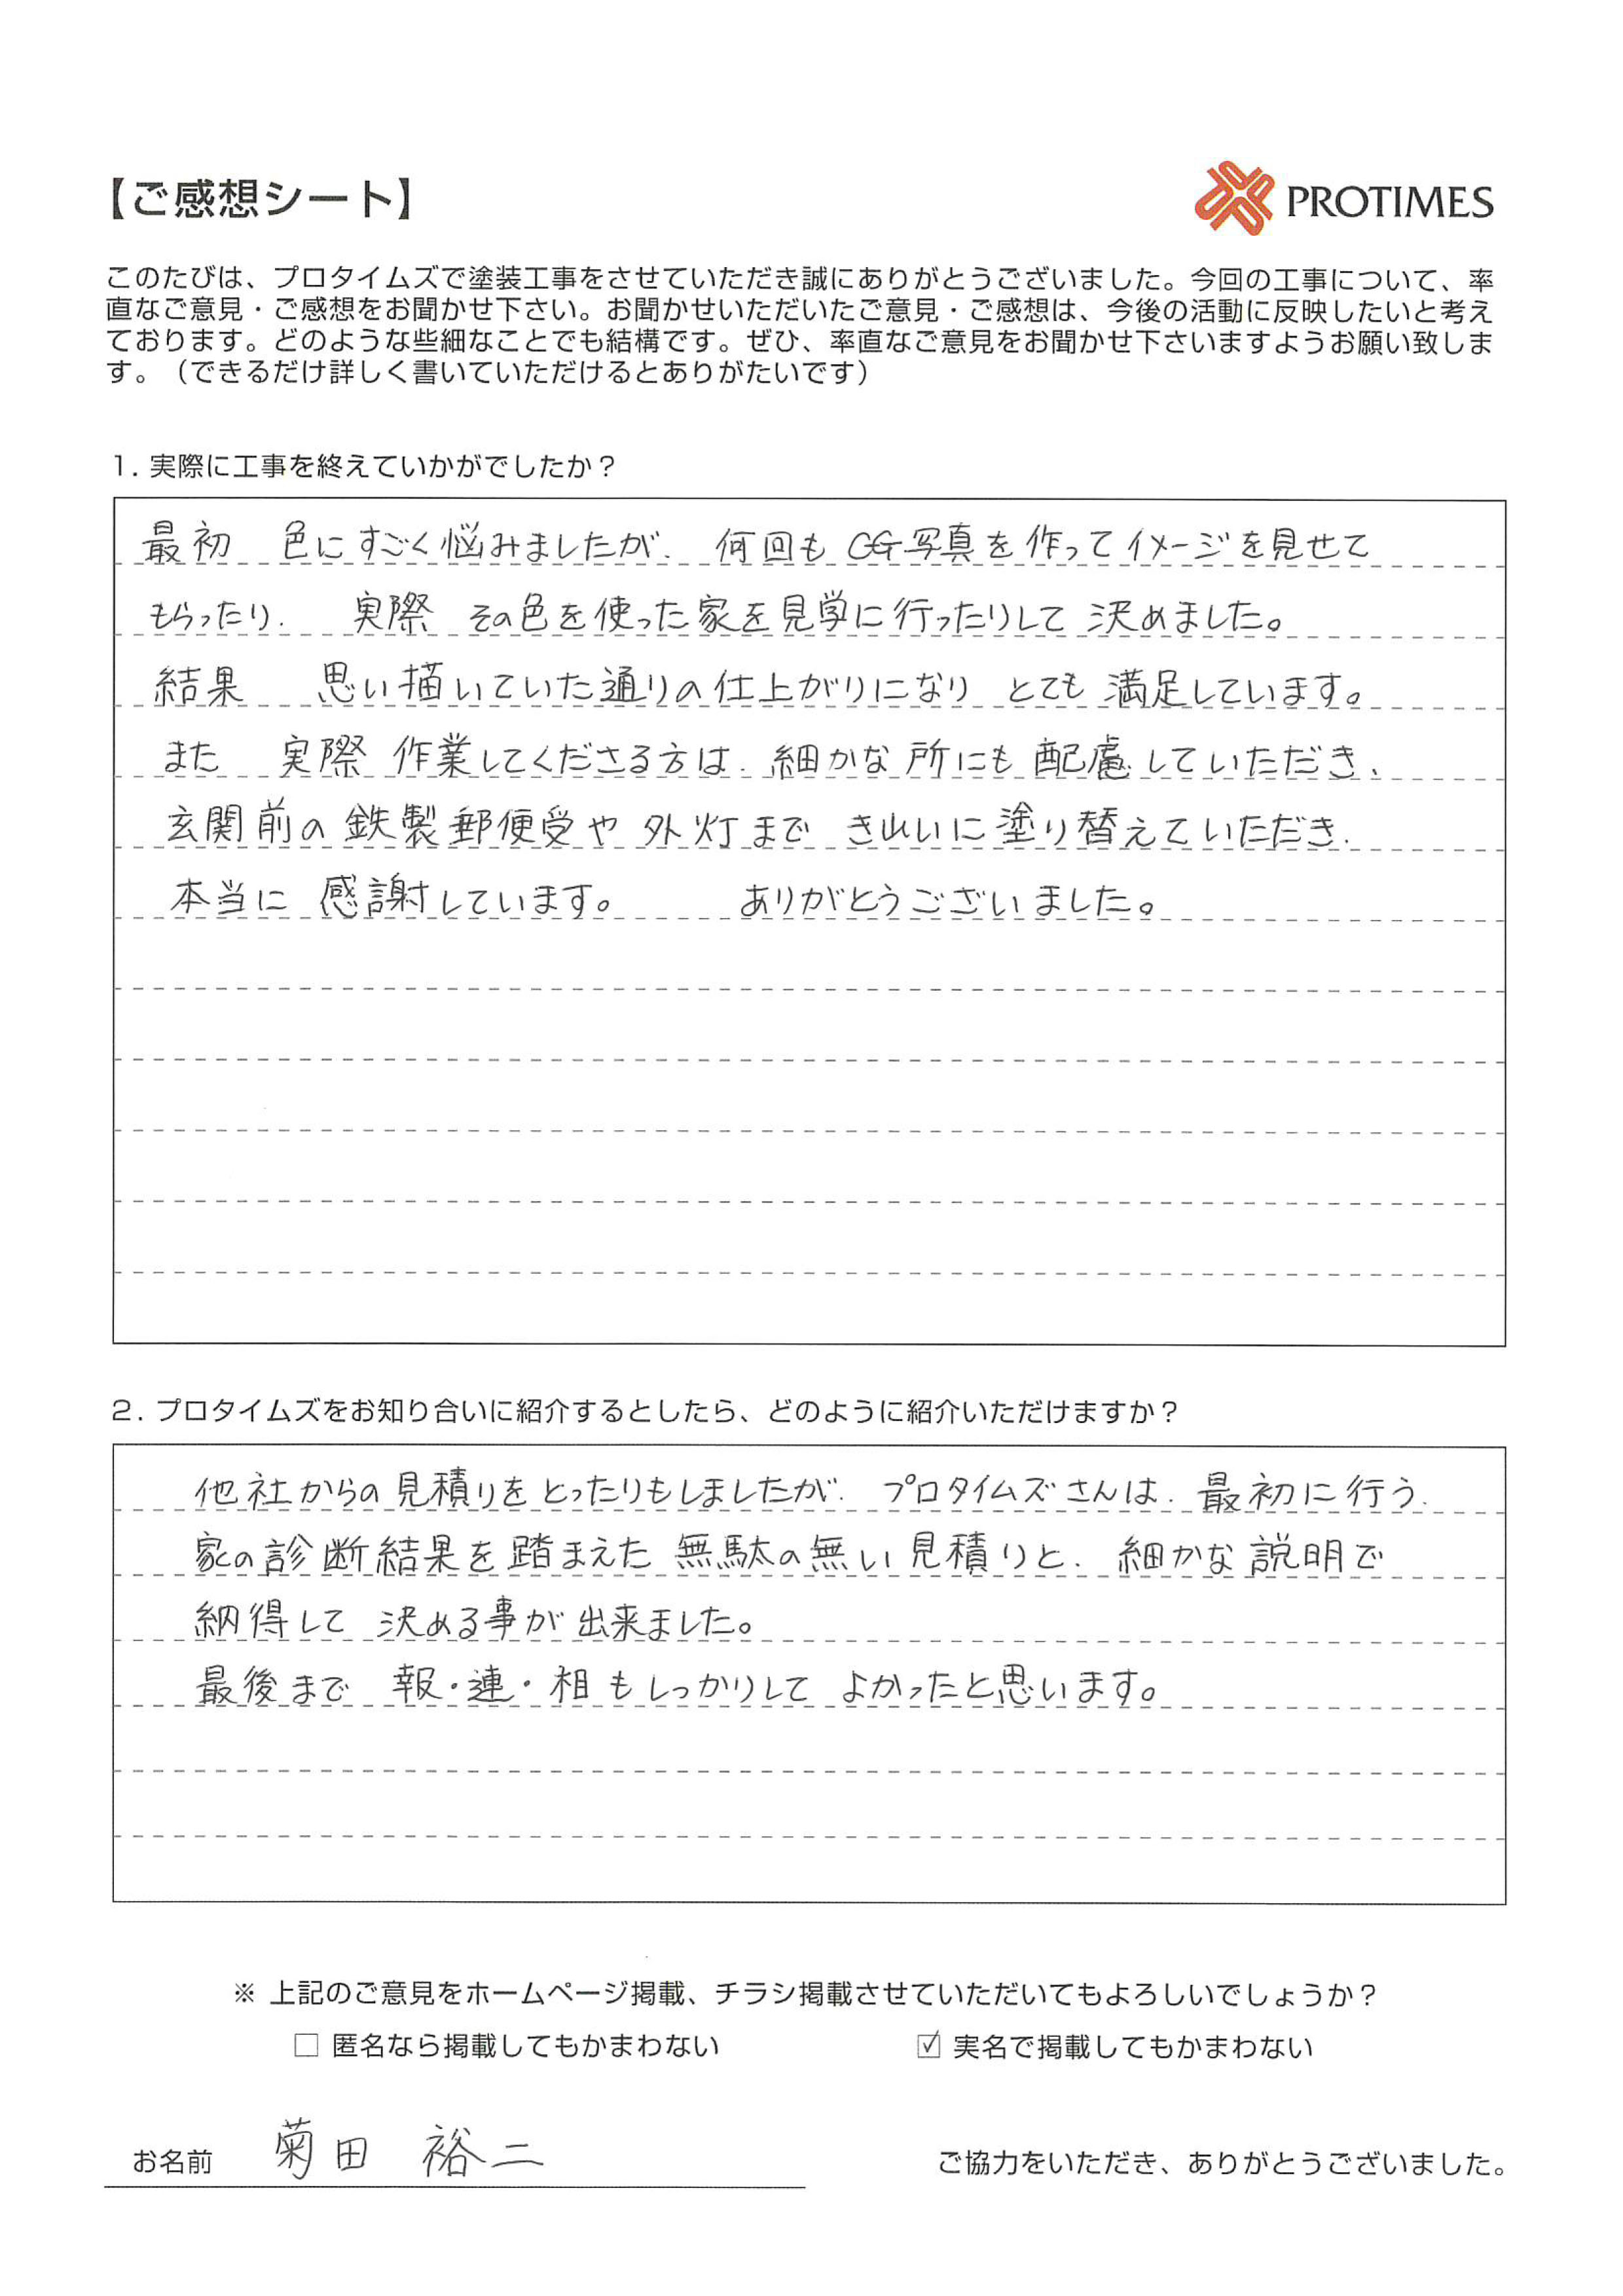 【ご感想シート】
PROTIMES
このたびは、プロタイムズで塗装工事をさせていただき誠にありがとうございました。今回の工事について、率
直なご意見・ご感想をお聞かせ下さい。お聞かせいただいたご意見・ご感想は、今後の活動に反映したいと考え
ております。どのような些細なことでも結構です。ぜひ、率直なご意見をお聞かせ下さいますようお願い致しま
す。（できるだけ詳しく書いていただけるとありがたいです）
1. 実際に工事を終えていかがでしたか？
最初 色にすごく悩みましたが、何回も CG写真を作ってイメージを見せて
もらったり、 実際 その色を使った家を見学に行ったりして 決めました。
結果 思い描いていた通りの仕上がりになり とても 満足しています。
また 実際 作業してくださる方は、細かな所にも 配慮していただき、
玄関前の 鉄製郵便受や 外灯まで きれいに塗り替えていただき、
本当に 感謝しています。 ありがとうございました。
2. プロタイムズをお知り合いに紹介するとしたら、どのように紹介いただけますか？
他社からの見積りをとったりもしましたが、プロタイムズさんは、最初に行う、
家の診断結果を踏まえた 無駄の無い見積りと、細かな説明で
納得して 決める事が出来ました。
最後まで 報・連・相もしっかりして よかったと思います。
※ 上記のご意見をホームページ掲載、チラシ掲載させていただいてもよろしいでしょうか？
□ 匿名なら掲載してもかまわない ☑ 実名で掲載してもかまわない
お名前 菊田 裕二 ご協力をいただき、ありがとうございました。